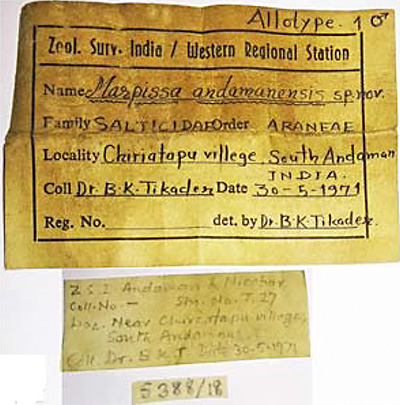 Allotype. 1 ♂
Zool. Surv. India / Western Regional Station
Name Marpissa andamanensis sp. nov.
Family SALTICIDAE Order ARANEAE
Locality Chiriatapu villege, South Andaman
INDIA.
Coll Dr. B.K. Tikader Date 30-5-1971
Reg. No. det. by Dr. B.K. Tikader.
Z S I Andaman & Nicobar
Coll. No. - Stn. No. T. 27
Loc. Near Chiriatapu village,
South Andaman
Coll. Dr. B K T Date 30-5-1971
5388/18